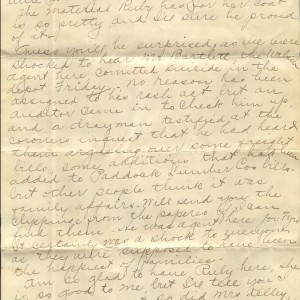 The material Ruby has for her coat
is so pretty and I'll sure be proud
of it.
Guess you'll be surprised, as we were
shocked to hear Mr Bartlett
agent here comitted suicide in the
depot Friday. No reason has been
assigned to his rash act but an
auditor came in to check him up,
and a drayman testified at the
coroners inquest that he had heard
them arguing over some freight
bills some additions that had been
added to Paddock Lumber Cos bills.
but other people think it was
family affairs. Will send you the
clippings from the papers if I can
find them. He was agent here for yrs
It certainly was a shock to everyone
as they were supposed to have been
the happiest of families.
Am so glad to have Ruby here, she
is so good to me, but I'll tell you
so did Mrs